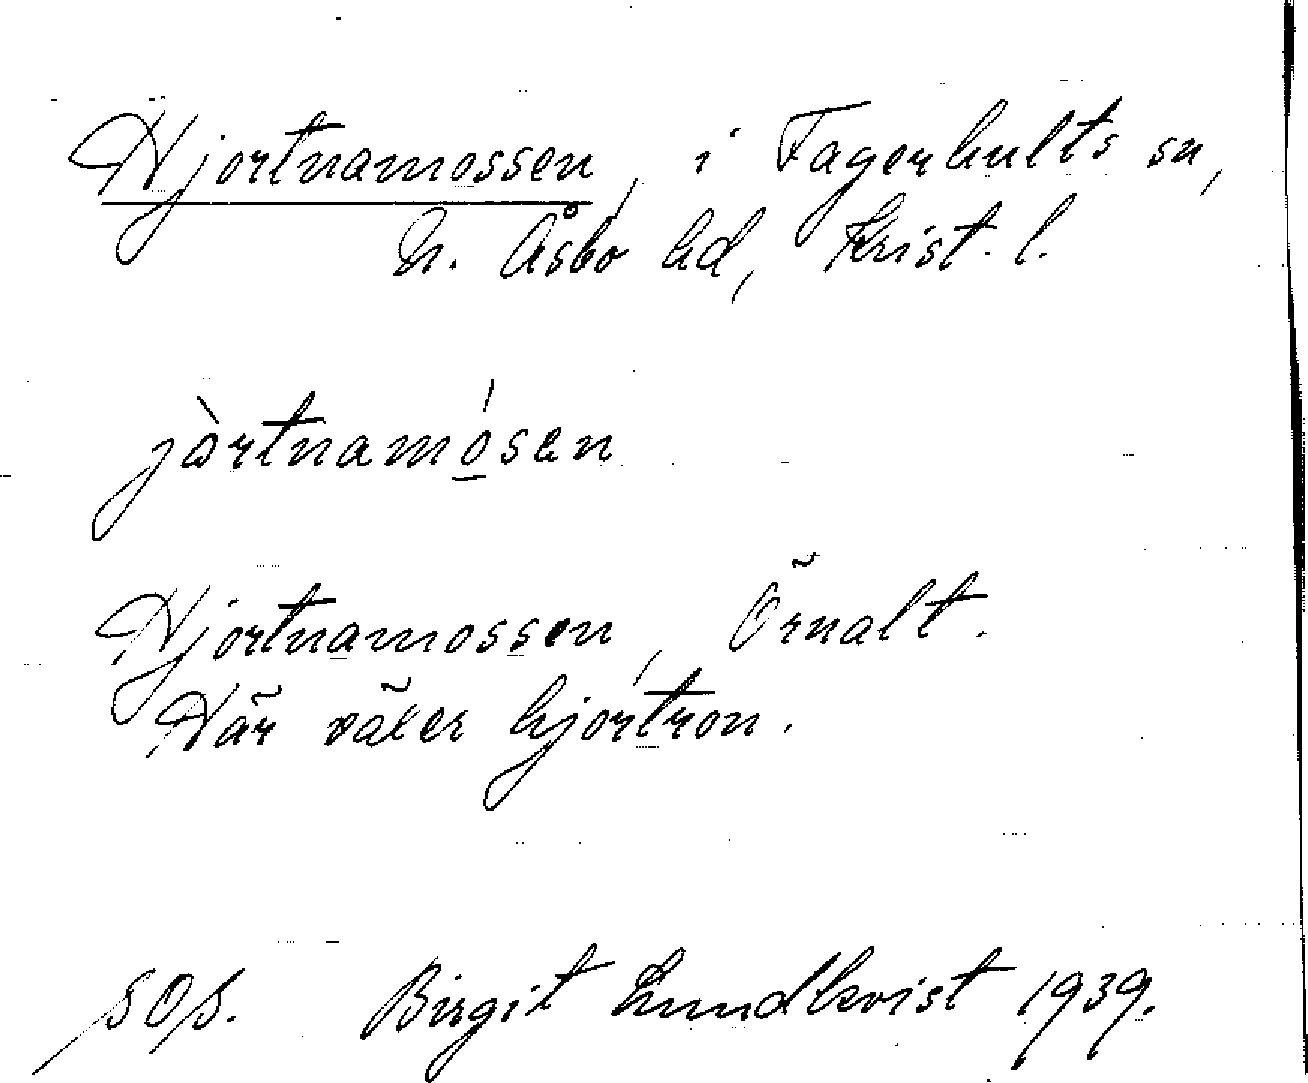 Hjortnamossen, i Fagerhults sn,
N. Åsbo hd, Krist. l.
jòrtnamó̱sen
Hjortnamossen, Örnalt.
Här växer hjortron.
Birgit Lundkvist 1939.